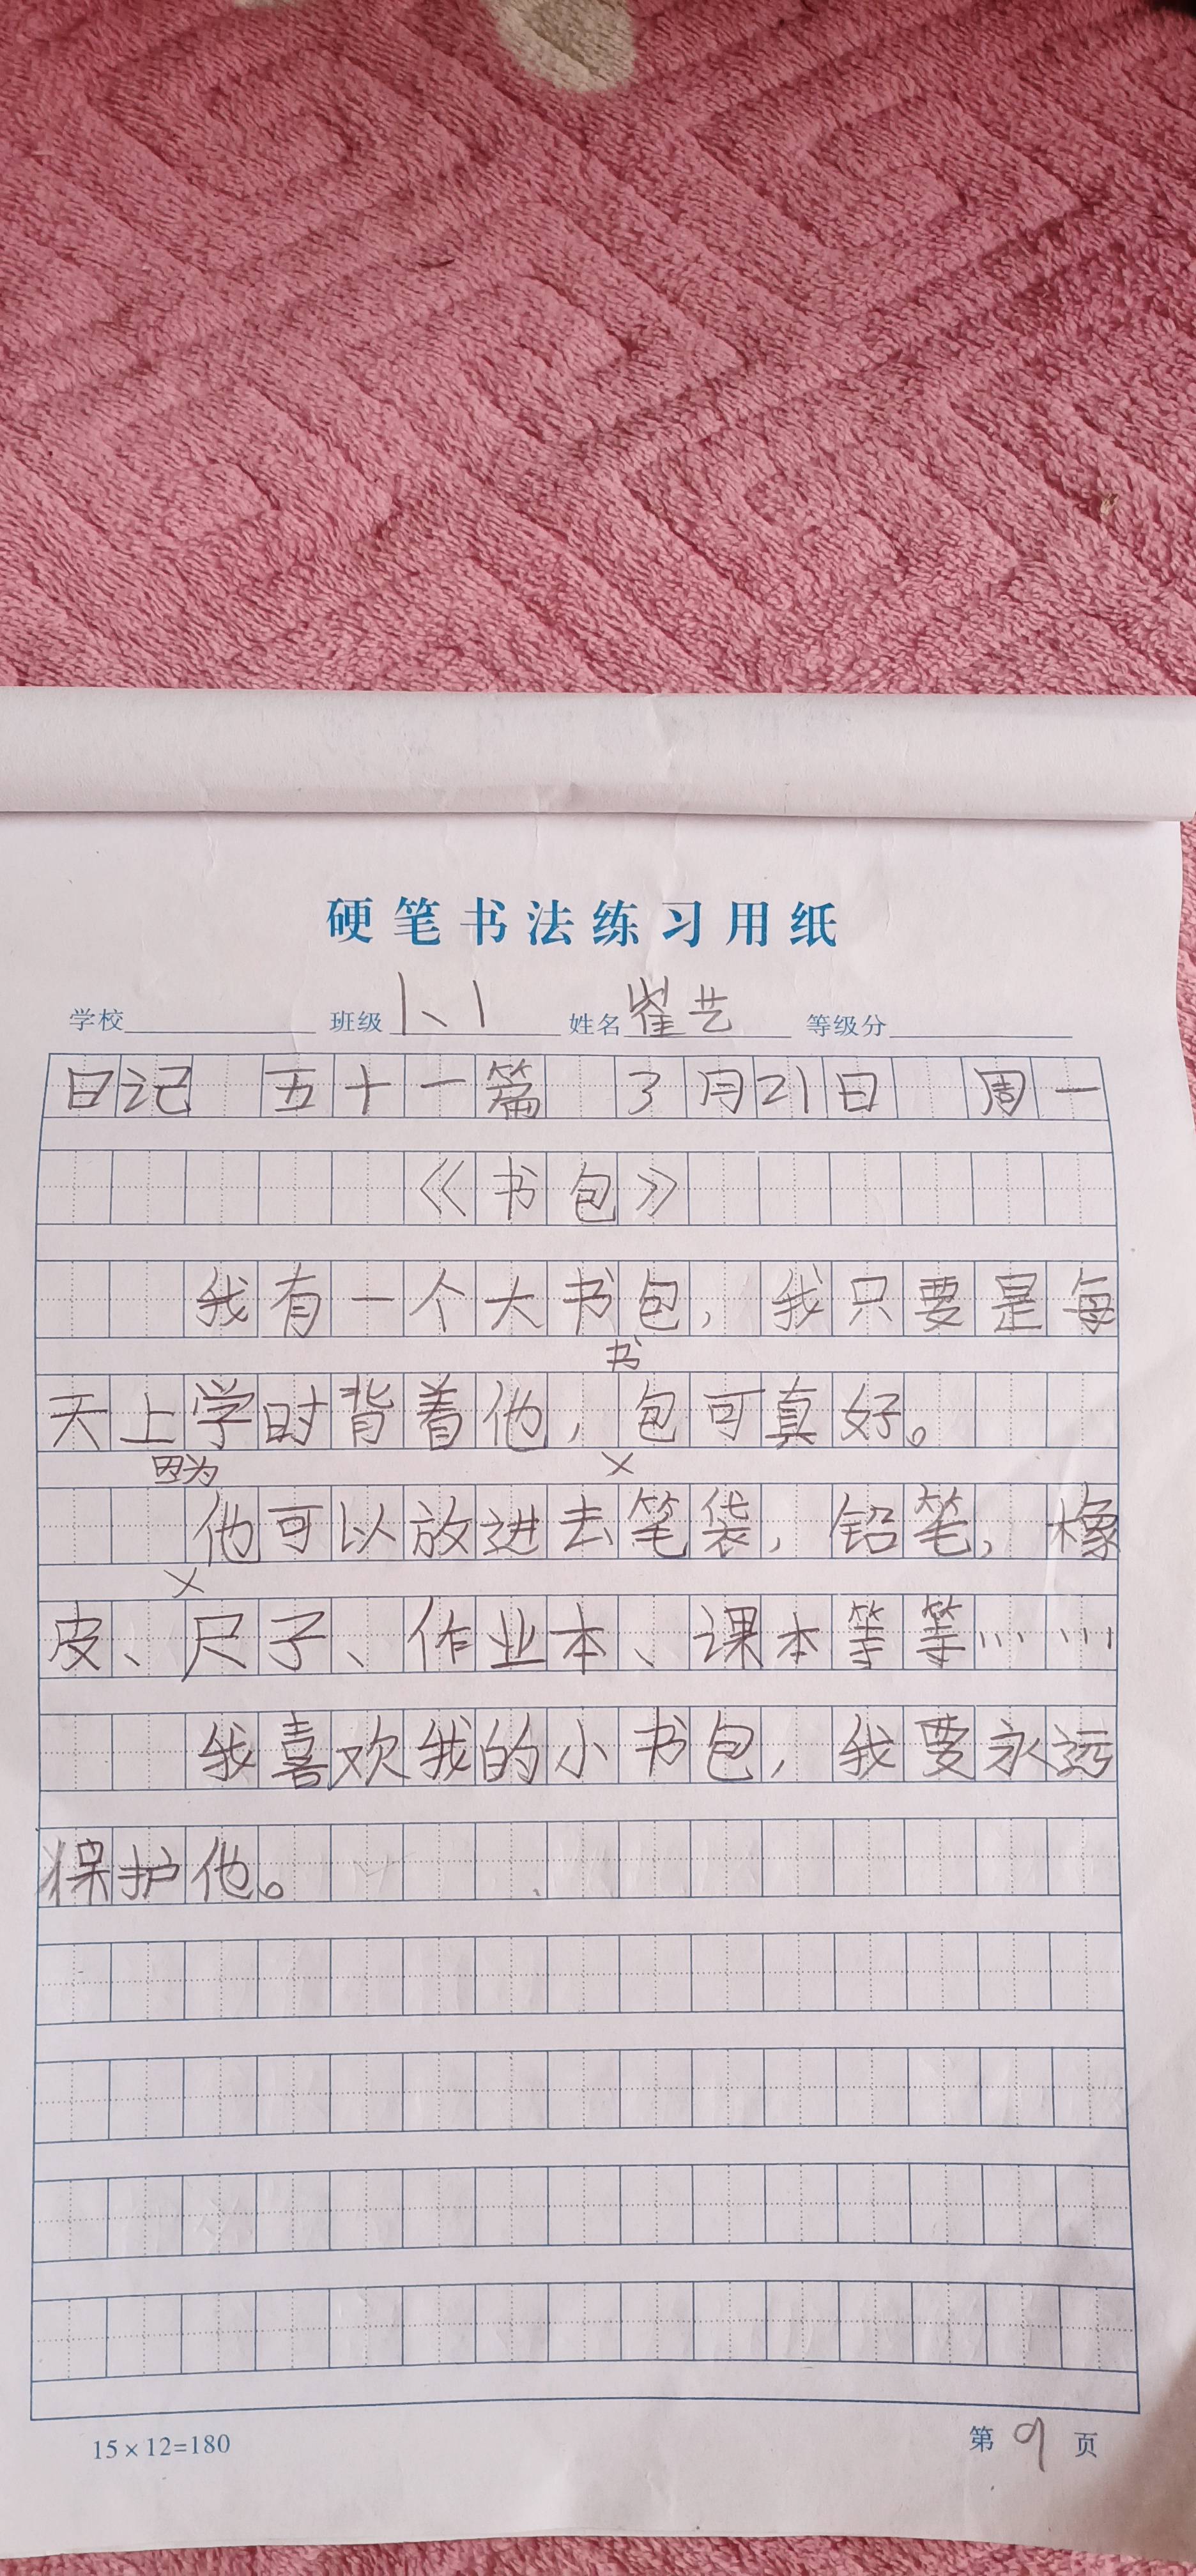 硬笔书法练习用纸
学校 班级 1、1 姓名 崔艺 等级分
日记 五十一篇 3月21日 周一
《书包》
我有一个大书包，我只要是每
书
天上学时背着他，包可真好。
因为 ×
他可以放进去笔袋，铅笔，橡
×
皮、尺子、作业本、课本等等……
我喜欢我的小书包，我要永远
保护他。
15×12=180 第 9 页